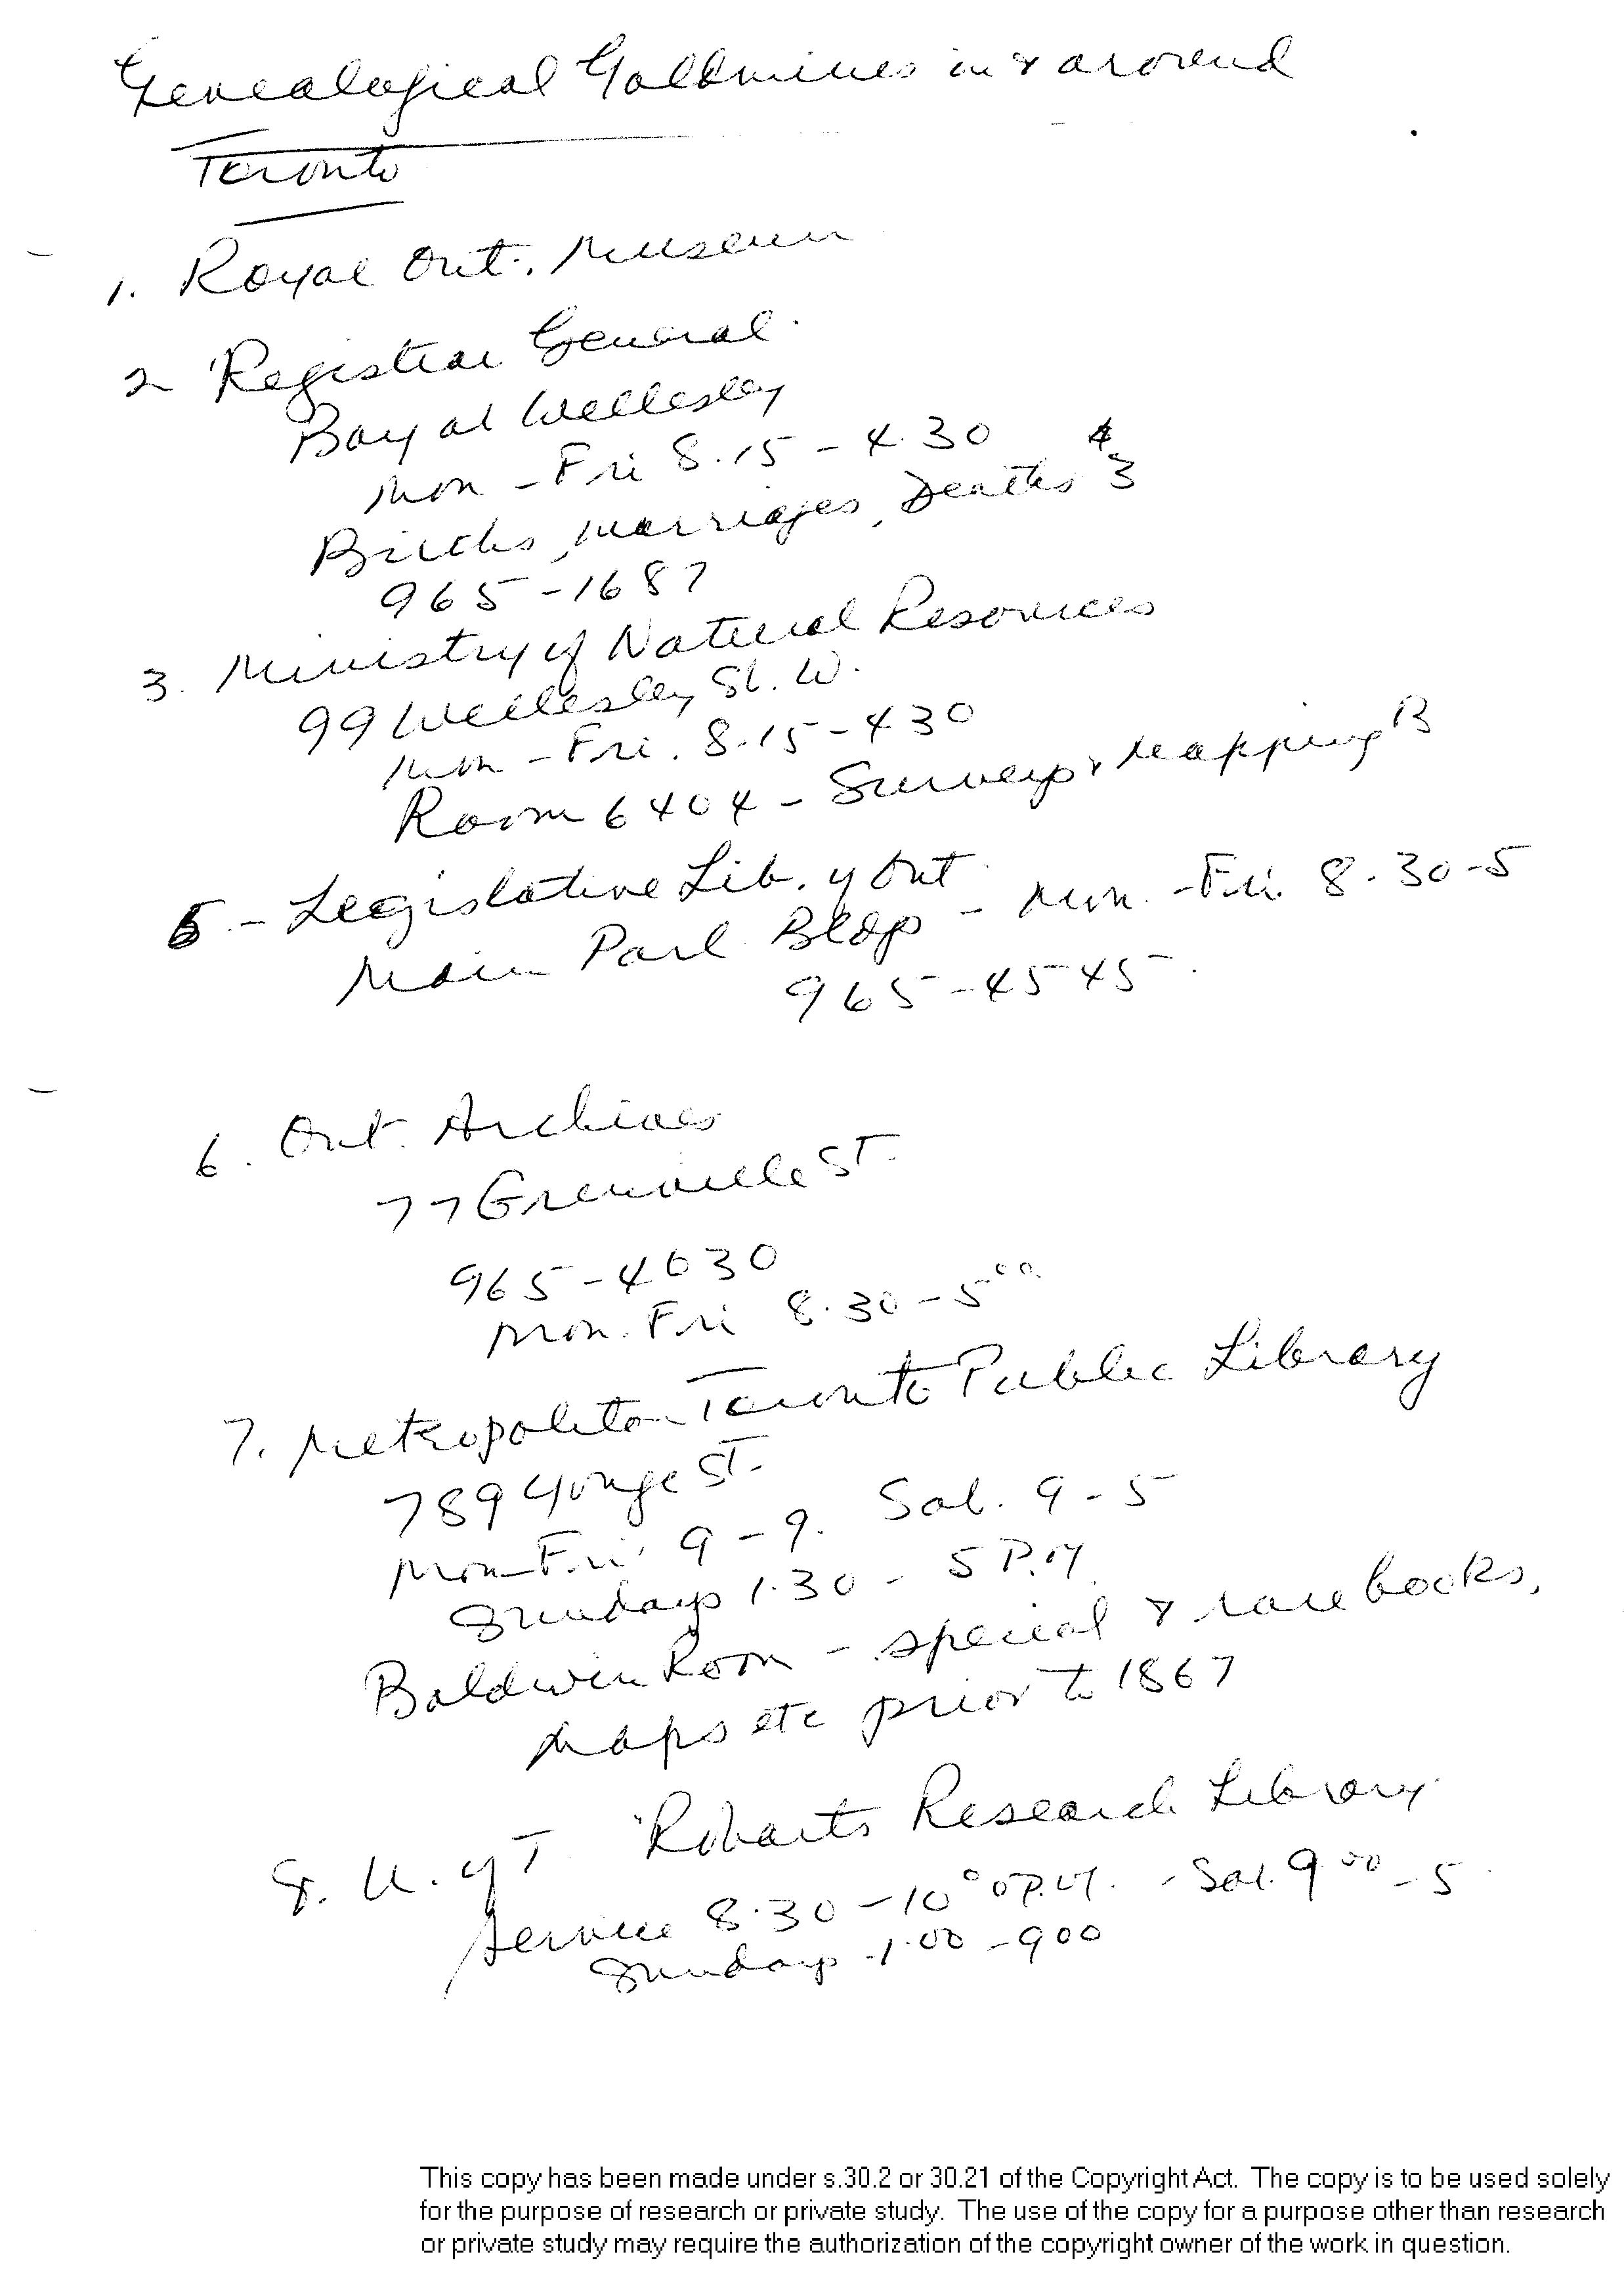 Genealogical Goldmines in & around
Toronto
1. Royal Ont. Museum
2 Registrar General
Bay at Wellesley
Mon - Fri 8.15 - 4.30
Births, Marriages, Deaths $3
965-1687
3. Ministry of Natural Resources
99 Wellesley St. W.
Mon - Fri. 8.15-430
Room 6404 - Surveys & Mapping B
5 - Legislative Lib. of Ont
Main Parl. Bldg - Mon. - Fri. 8.30-5
965-4545
6. Ont. Archives
77 Grenville ST.
965-4030
Mon. Fri 8.30-5 00
7. Metropolitan Toronto Public Library
789 Yonge ST.
Mon-Fri 9-9. Sat. 9-5
Sundays 1.30 - 5 P.M.
Baldwin Room - special & rare books,
maps etc prior to 1867
8. U. of T Robarts Research Library
Service 8.30-10 00 P.M. - Sat. 9 00 - 5
Sundays 1.00 - 900
This copy has been made under s.30.2 or 30.21 of the Copyright Act. The copy is to be used solely
for the purpose of research or private study. The use of the copy for a purpose other than research
or private study may require the authorization of the copyright owner of the work in question.